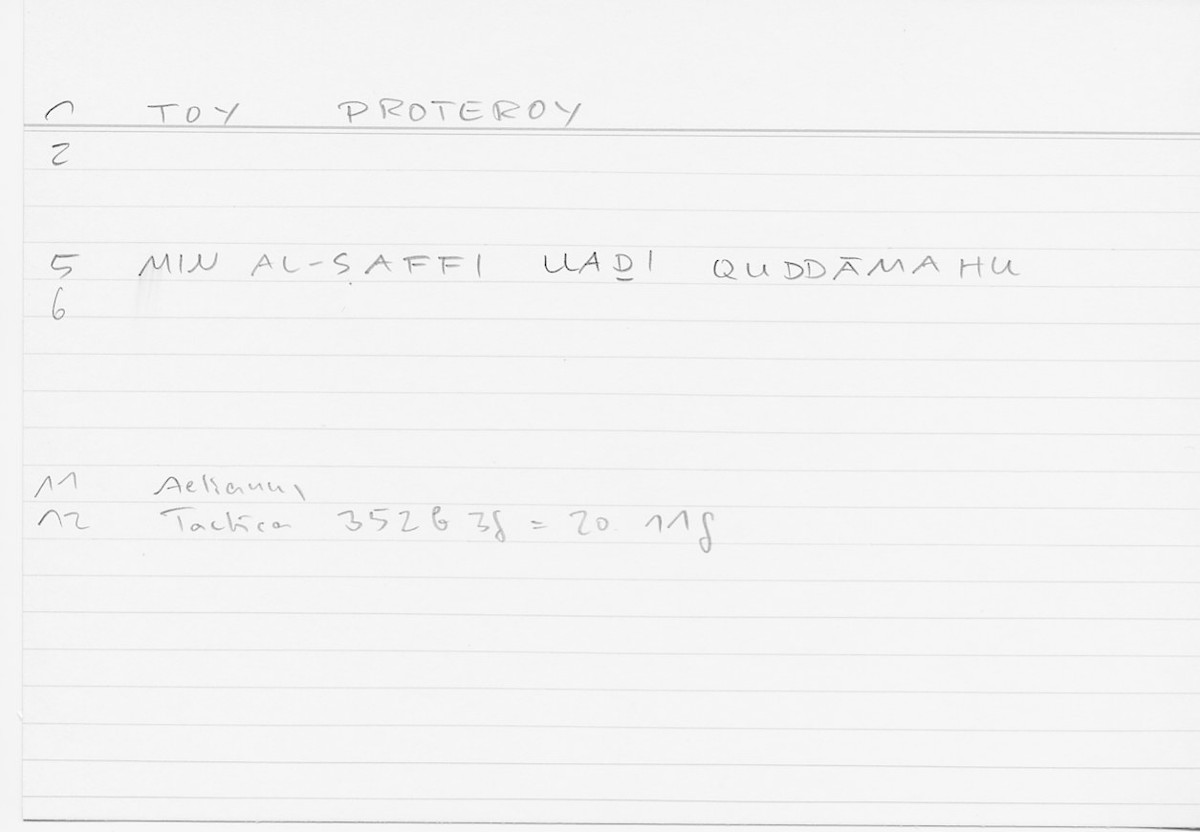 1 TOY PROTEROY
2
5 MIN AL-ṢAFFI LLAḎI QUDDĀMAHU
6
11 Aelianus
12 Tactica 352b 3f = 20. 11f